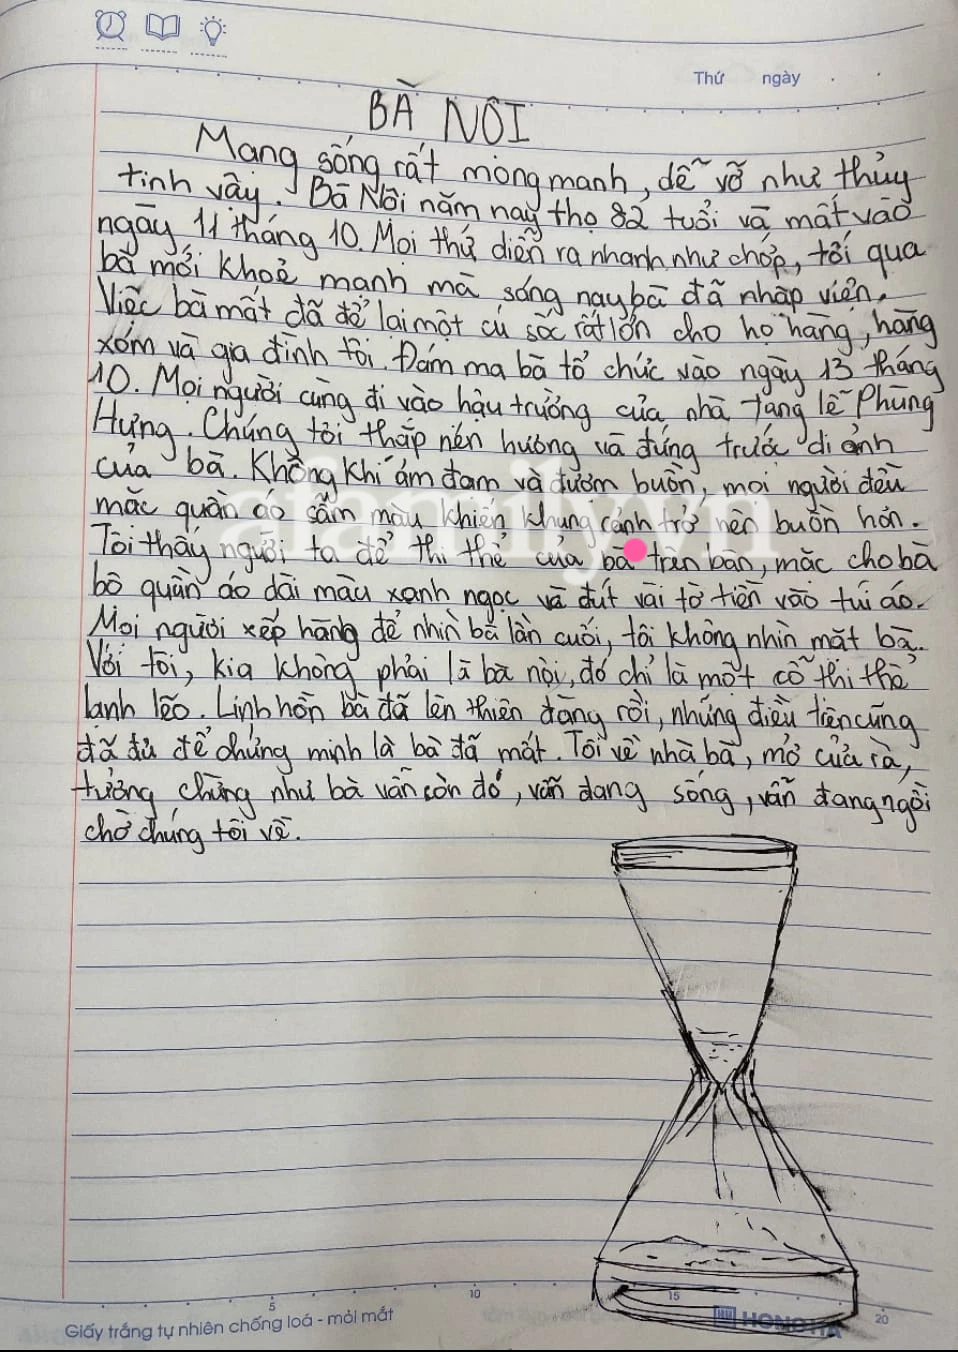 Thứ ngày
BÀ NỘI
Mạng sống rất mỏng manh, dễ vỡ như thủy
tinh vậy. Bà Nội năm nay thọ 82 tuổi và mất vào
ngày 11 tháng 10. Mọi thứ diễn ra nhanh như chớp, tối qua
bà mới khoẻ mạnh mà sáng nay bà đã nhập viện.
Việc bà mất đã để lại một cú sốc rất lớn cho họ hàng, hàng
xóm và gia đình tôi. Đám ma bà tổ chức vào ngày 13 tháng
10. Mọi người cùng đi vào hậu trường của nhà tang lễ Phùng
Hưng. Chúng tôi thắp nén hương và đứng trước di ảnh
của bà. Không khí ảm đạm và đượm buồn, mọi người đều
mặc quần áo sẫm màu khiến khung cảnh trở nên buồn hơn.
Tôi thấy người ta để thi thể của bà trên bàn, mặc cho bà
bộ quần áo dài màu xanh ngọc và đút vài tờ tiền vào túi áo.
Mọi người xếp hàng để nhìn bà lần cuối, tôi không nhìn mặt bà.
Với tôi, kia không phải là bà nội, đó chỉ là một cỗ thi thể
lạnh lẽo. Linh hồn bà đã lên thiên đàng rồi, những điều trên cũng
đã đủ để chứng minh là bà đã mất. Tôi về nhà bà, mở cửa ra,
tưởng chừng như bà vẫn còn đó, vẫn đang sống, vẫn đang ngồi
chờ chúng tôi về.
afamily.vn
5 10 15 20
Giấy trắng tự nhiên chống loá - mỏi mắt
HONG HA